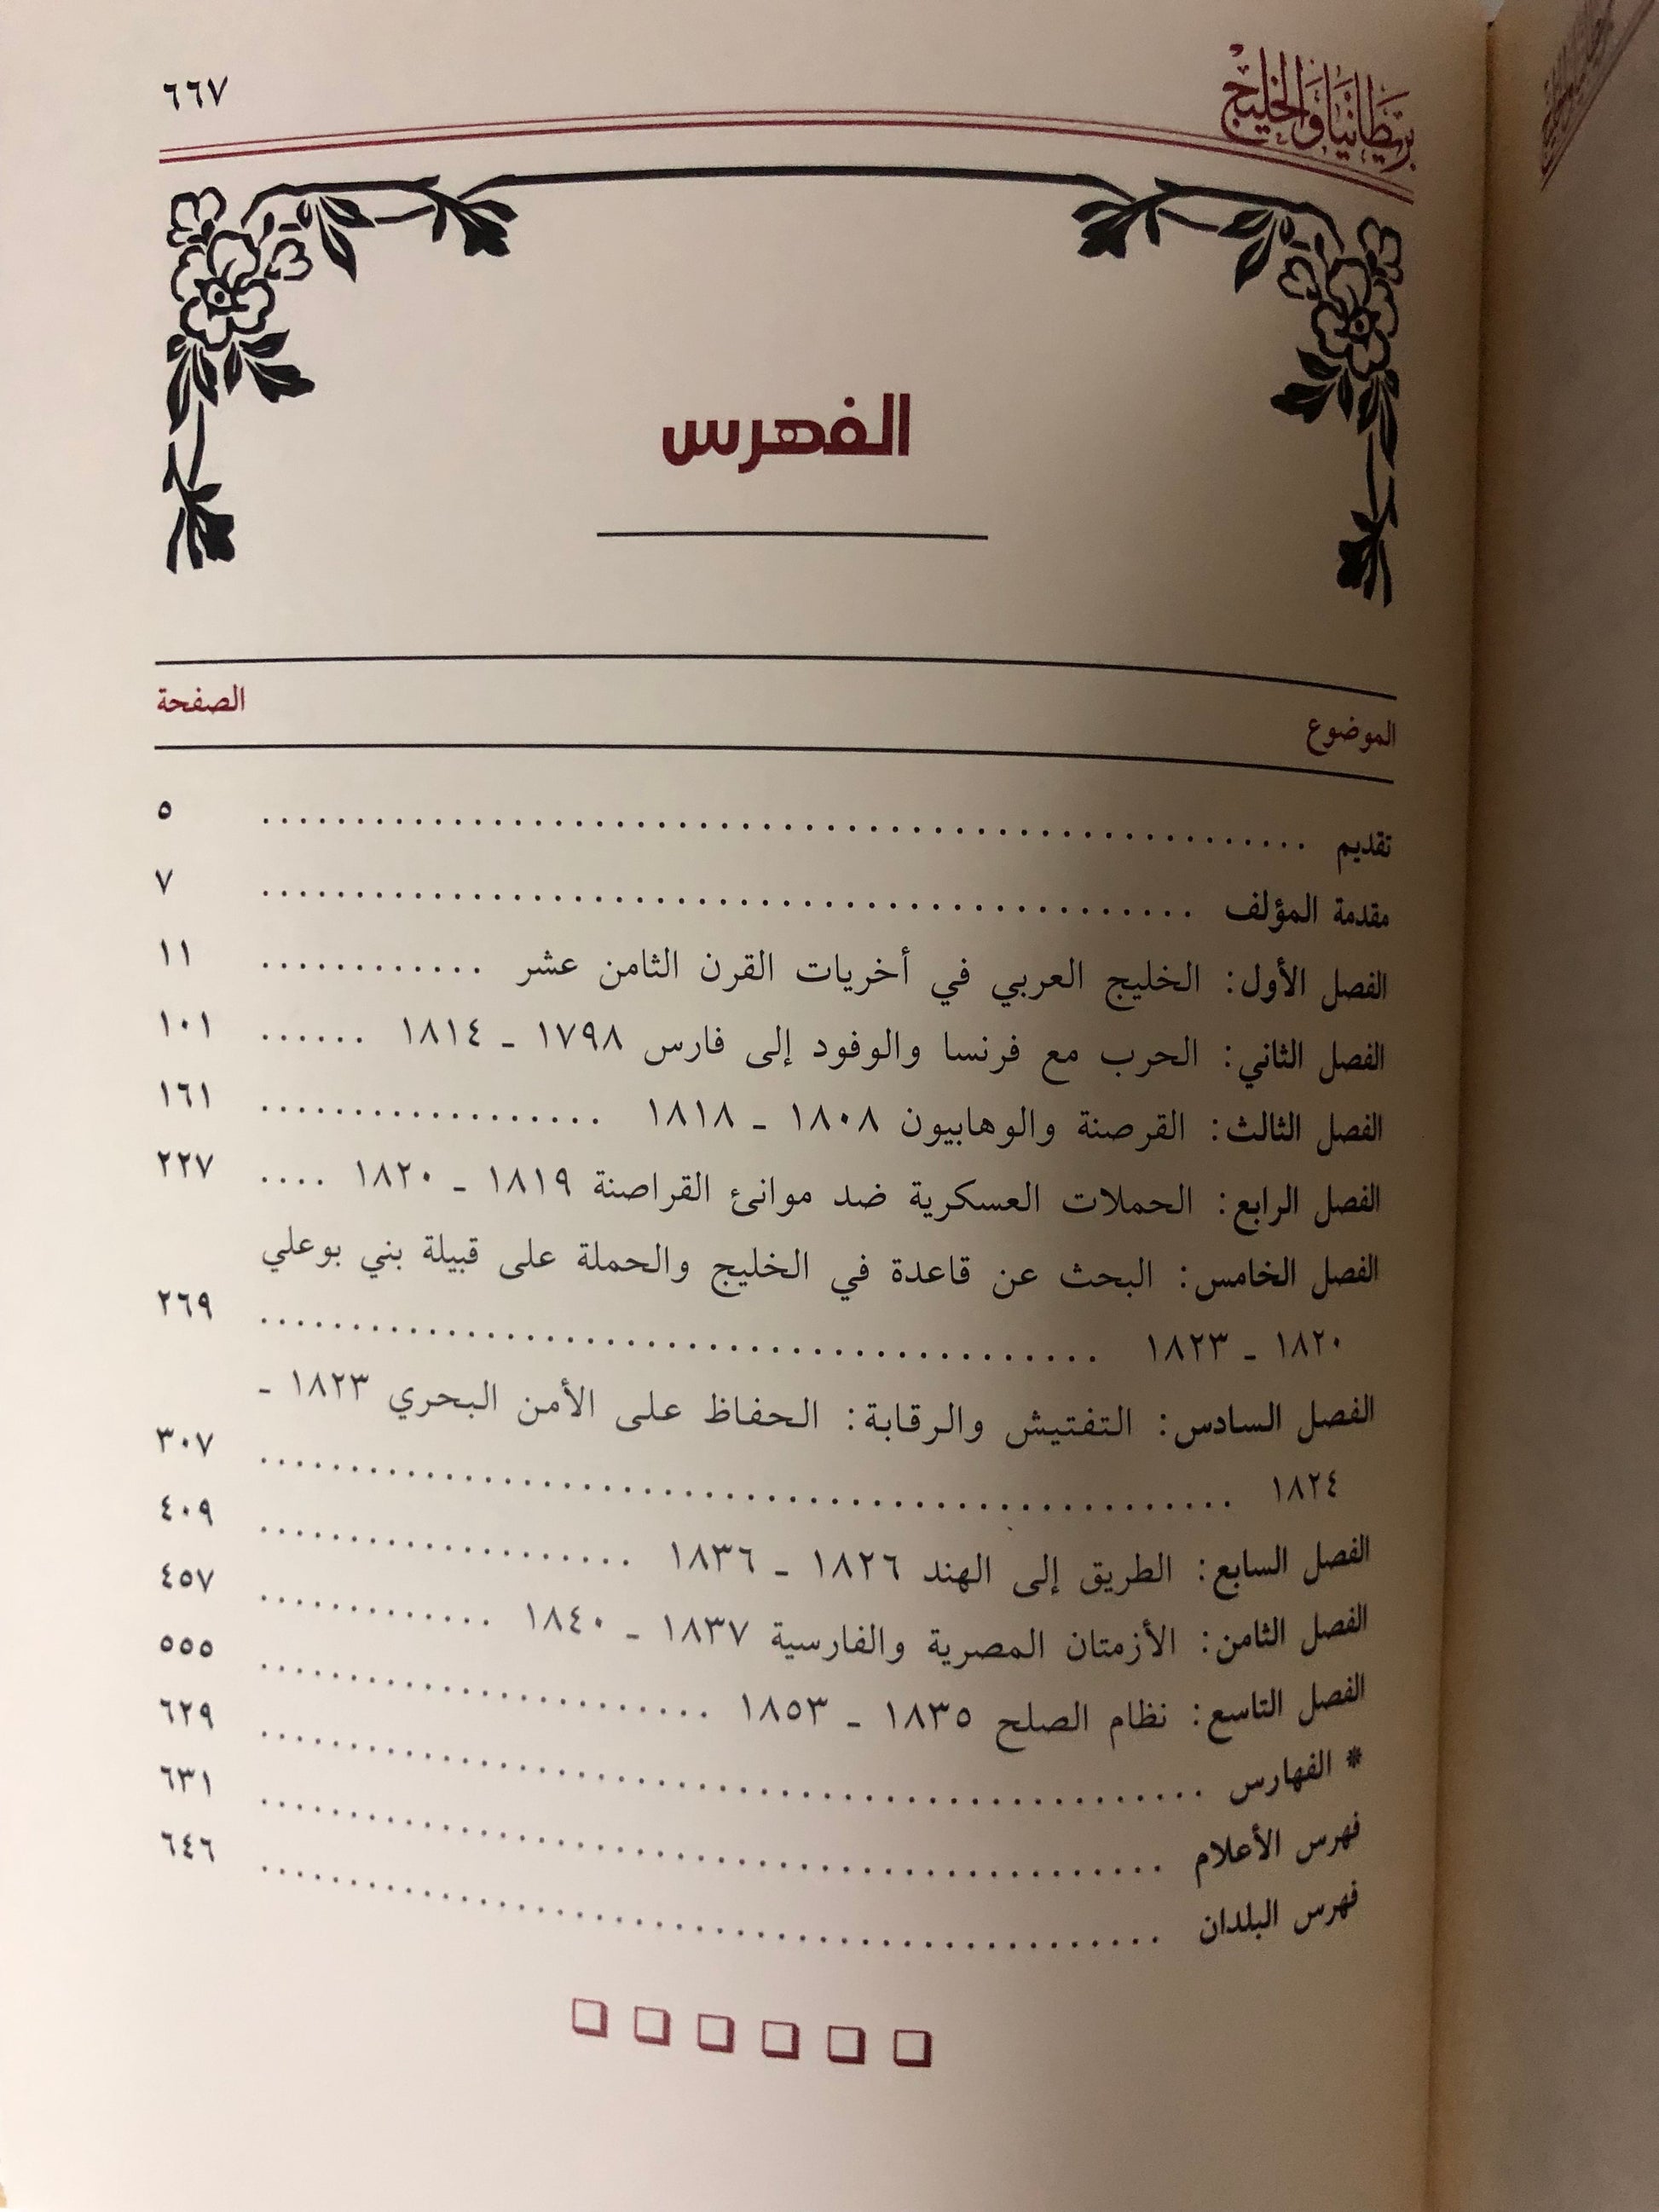 بريطانيا والخليج
٦٦٧
الفهرس
الموضوع الصفحة
تقديم ............ ٥
مقدمة المؤلف ............ ٧
الفصل الأول: الخليج العربي في أخريات القرن الثامن عشر ............ ١١
الفصل الثاني: الحرب مع فرنسا والوفود إلى فارس ١٧٩٨ ـ ١٨١٤ ...... ١٠١
الفصل الثالث: القرصنة والوهابيون ١٨٠٨ ـ ١٨١٨ ............ ١٦١
الفصل الرابع: الحملات العسكرية ضد موانئ القراصنة ١٨١٩ ـ ١٨٢٠ .... ٢٢٧
الفصل الخامس: البحث عن قاعدة في الخليج والحملة على قبيلة بني بوعلي
١٨٢٠ ـ ١٨٢٣ ............ ٢٦٩
الفصل السادس: التفتيش والرقابة: الحفاظ على الأمن البحري ١٨٢٣ ـ
١٨٢٤ ............ ٣٠٧
الفصل السابع: الطريق إلى الهند ١٨٢٦ ـ ١٨٣٦ ............ ٤٠٩
الفصل الثامن: الأزمتان المصرية والفارسية ١٨٣٧ ـ ١٨٤٠ ............ ٤٥٧
الفصل التاسع: نظام الصلح ١٨٣٥ ـ ١٨٥٣ ............ ٥٥٥
* الفهارس ............ ٦٢٩
فهرس الأعلام ............ ٦٣١
فهرس البلدان ............ ٦٤٦